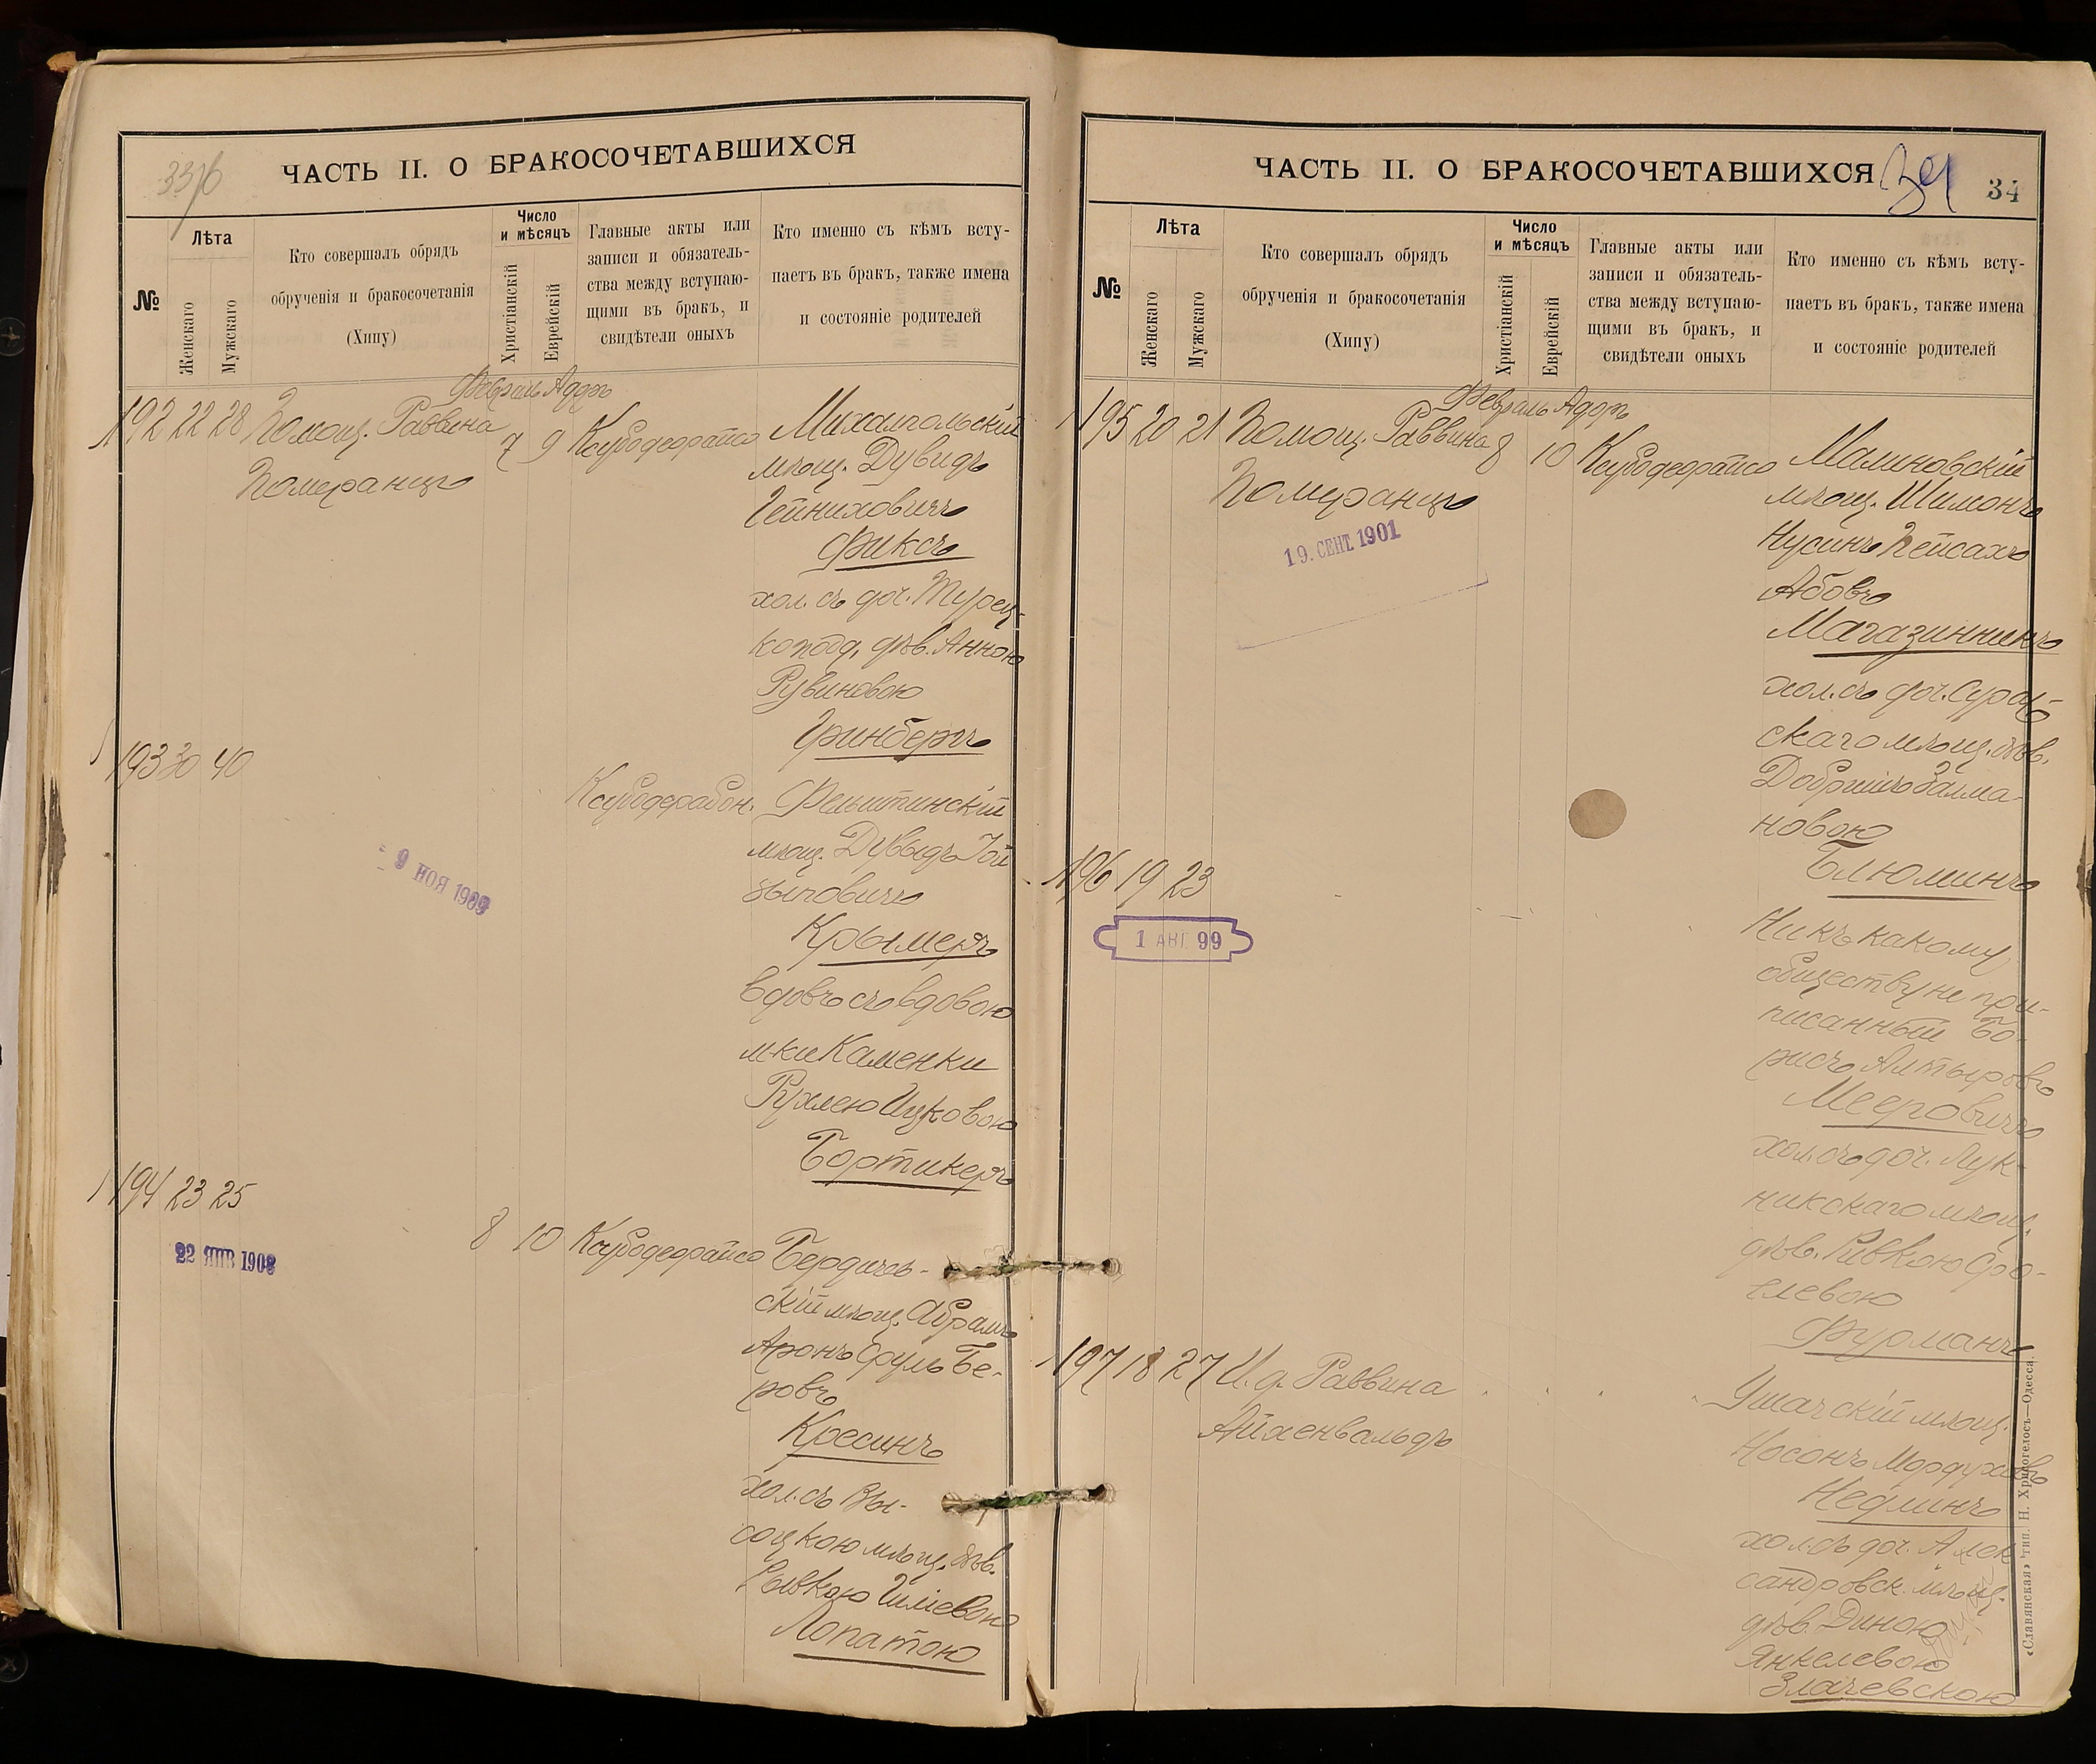 33/б
ЧАСТЬ II. О БРАКОСОЧЕТАВШИХСЯ
№
Лѣта
Женскаго
Мужскаго
Кто совершалъ обрядъ
обрученія и бракосочетанія
(Хипу)
Число
и мѣсяцъ
Христіанскій
Еврейскій
Главные акты или
записи и обязатель-
ства между вступаю-
щими въ бракъ, и
свидѣтели оныхъ
Кто именно съ кѣмъ всту-
паетъ въ бракъ, также имена
и состояніе родителей
Февраль Адаръ
192 22 28 Помощ. Раввина 7 9 Ксубодеорайсо
Померанцъ
Михампольскій
мѣщ. Дувидъ
Гейниховичъ
Фиксъ
хол. съ доч. Турец-
ко подд. дѣв. Анною
Рувиновою
Гринбергъ
193 30 40
Ксубодерабон.
9 НОЯ 1909
Фельштинскій
мѣщ. Дувидъ Іой
зыповичъ
Крымеръ
вдовъ съ вдовою
м-ки Каменки
Рухлею Ицковою
Бортикеръ
194 23 25 8 10 Ксубодеорайсо
22 ЯНВ 1908
Бердичев-
скій мѣщ. Абрамъ
Аронъ Сруль Бе-
ровъ
Кресинъ
хол. съ Вы-
соцкою мѣщ. дѣв.
Шліевою
Лопатою
ЧАСТЬ II. О БРАКОСОЧЕТАВШИХСЯ
34
34
№
Лѣта
Женскаго
Мужскаго
Кто совершалъ обрядъ
обрученія и бракосочетанія
(Хипу)
Число
и мѣсяцъ
Христіанскій
Еврейскій
Главные акты или
записи и обязатель-
ства между вступаю-
щими въ бракъ, и
свидѣтели оныхъ
Кто именно съ кѣмъ всту-
паетъ въ бракъ, также имена
и состояніе родителей
Февраль Адаръ
195 20 21 Помощ. Раввина 8 10 Ксубодеорайсо
Померанцъ
19. СЕНТ. 1901
Малиновскій
мѣщ. Шимонъ
Нусинъ Пейсахъ
Абовъ
Магазинникъ
хол. съ доч. Сураж-
скаго мѣщ. дѣв.
Добришъ Залма-
новою
Блюминъ
196 19 23
1 АВГ. 99
Ни къ какому
обществу не при-
писанный Бо-
рисъ Алтыровъ
Мееровичъ
хол. съ доч. Лук-
никскаго мѣщ.
дѣв. Ривкою Сро-
левою
Фурманъ
197 18 27 И. д. Раввина
Айхенвальдъ
Ушачскій мѣщ.
Носонъ Мордуховъ
Недлинъ
хол. съ доч. Алек-
сандровск. мѣщ.
дѣв. Диною
Янкелевою
Злачевскою
«Славянская» тип. Н. Хрисогелосъ—Одесса.